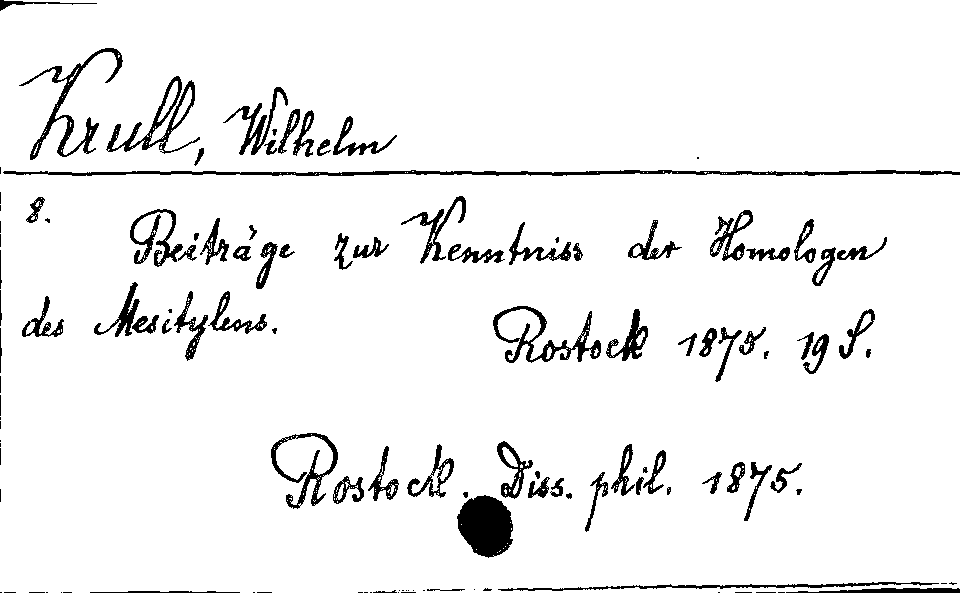 Krull, Wilhelm
8.
Beiträge zur Kenntniss der Homologen
des Mesitylens.
Rostock 1875. 19 S.
Rostock. Diss. phil. 1875.